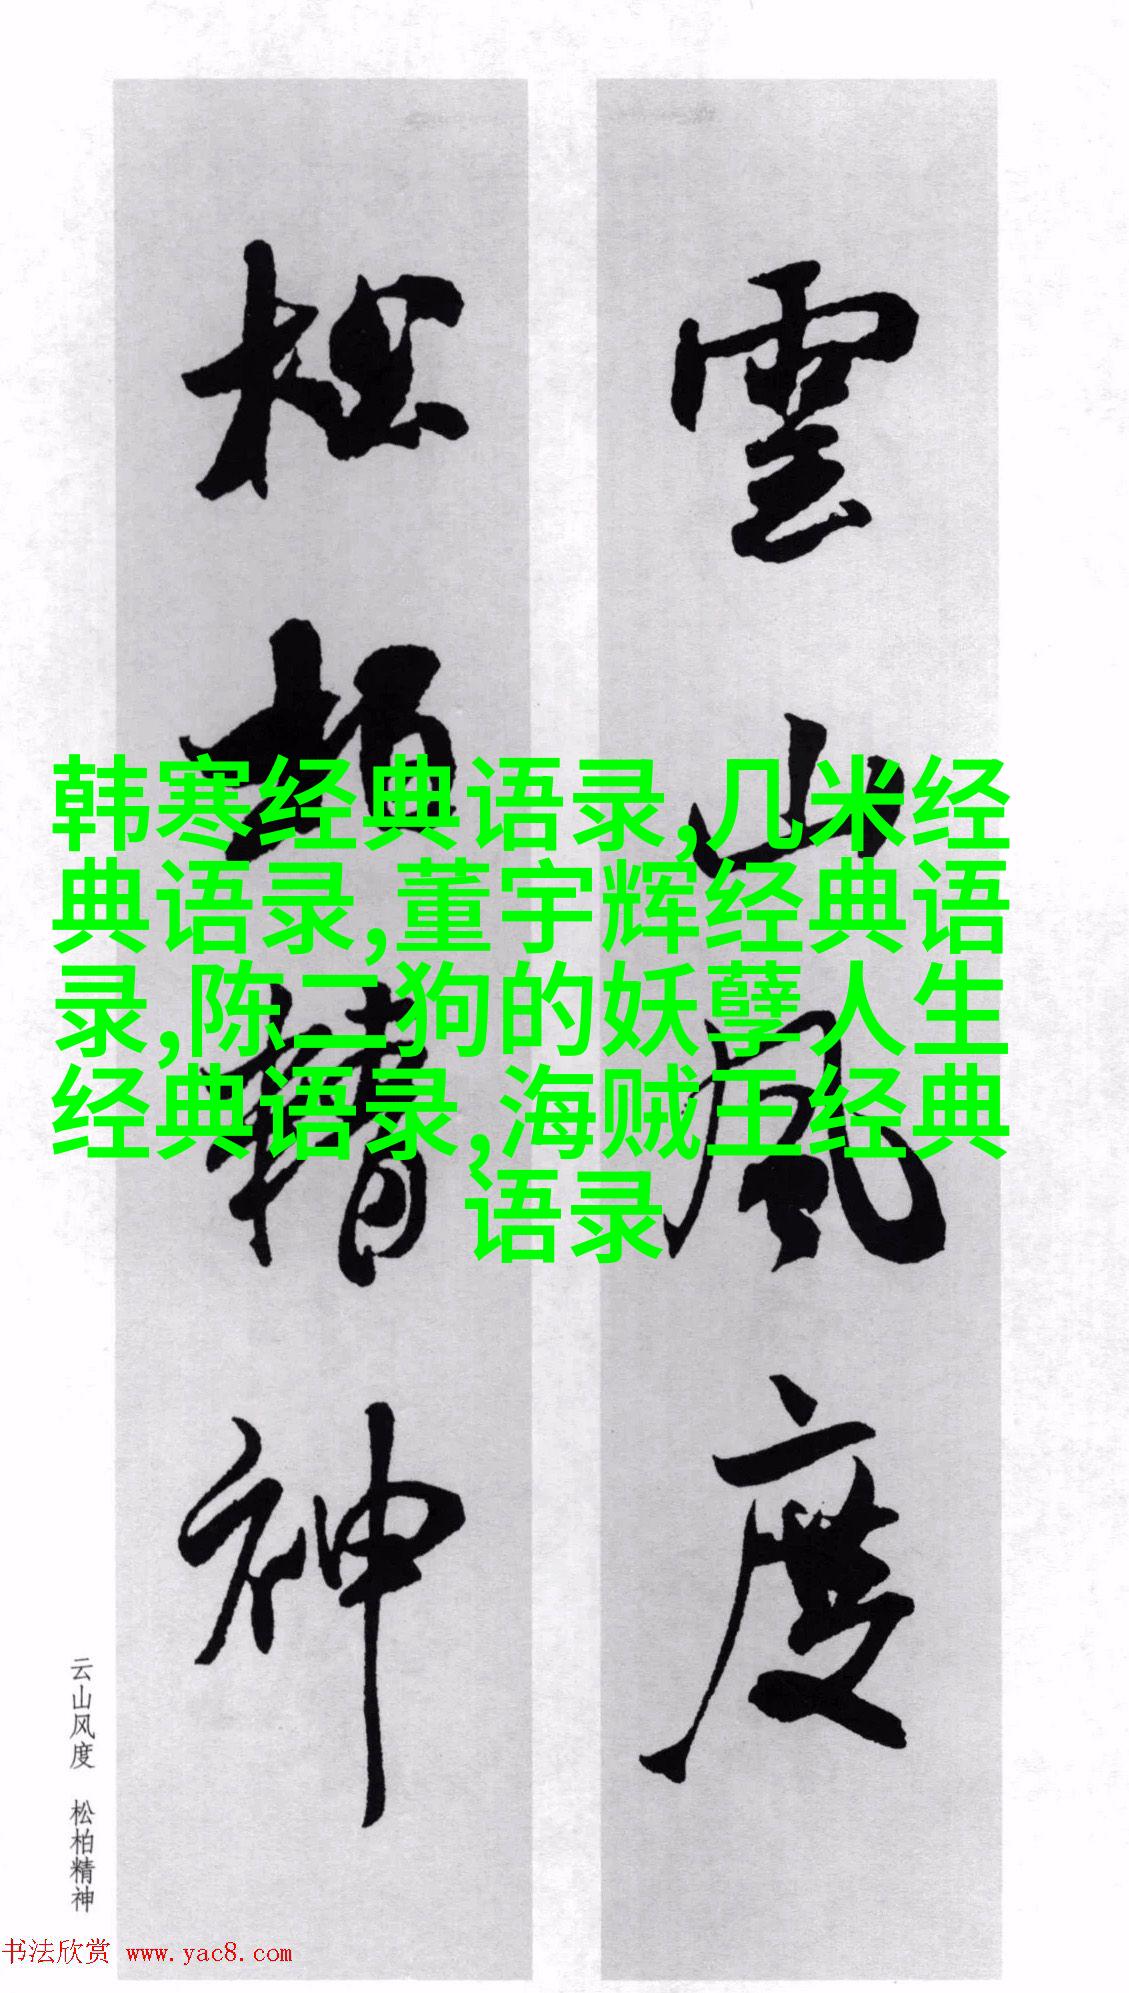 雲山風度
松柏精神
韩寒经典语录,几米经
典语录,董宇辉经典语
录,陈二狗的妖孽人生
经典语录,海贼王经典
语录
云山风度 松柏精神
书法欣赏 www.yac8.com